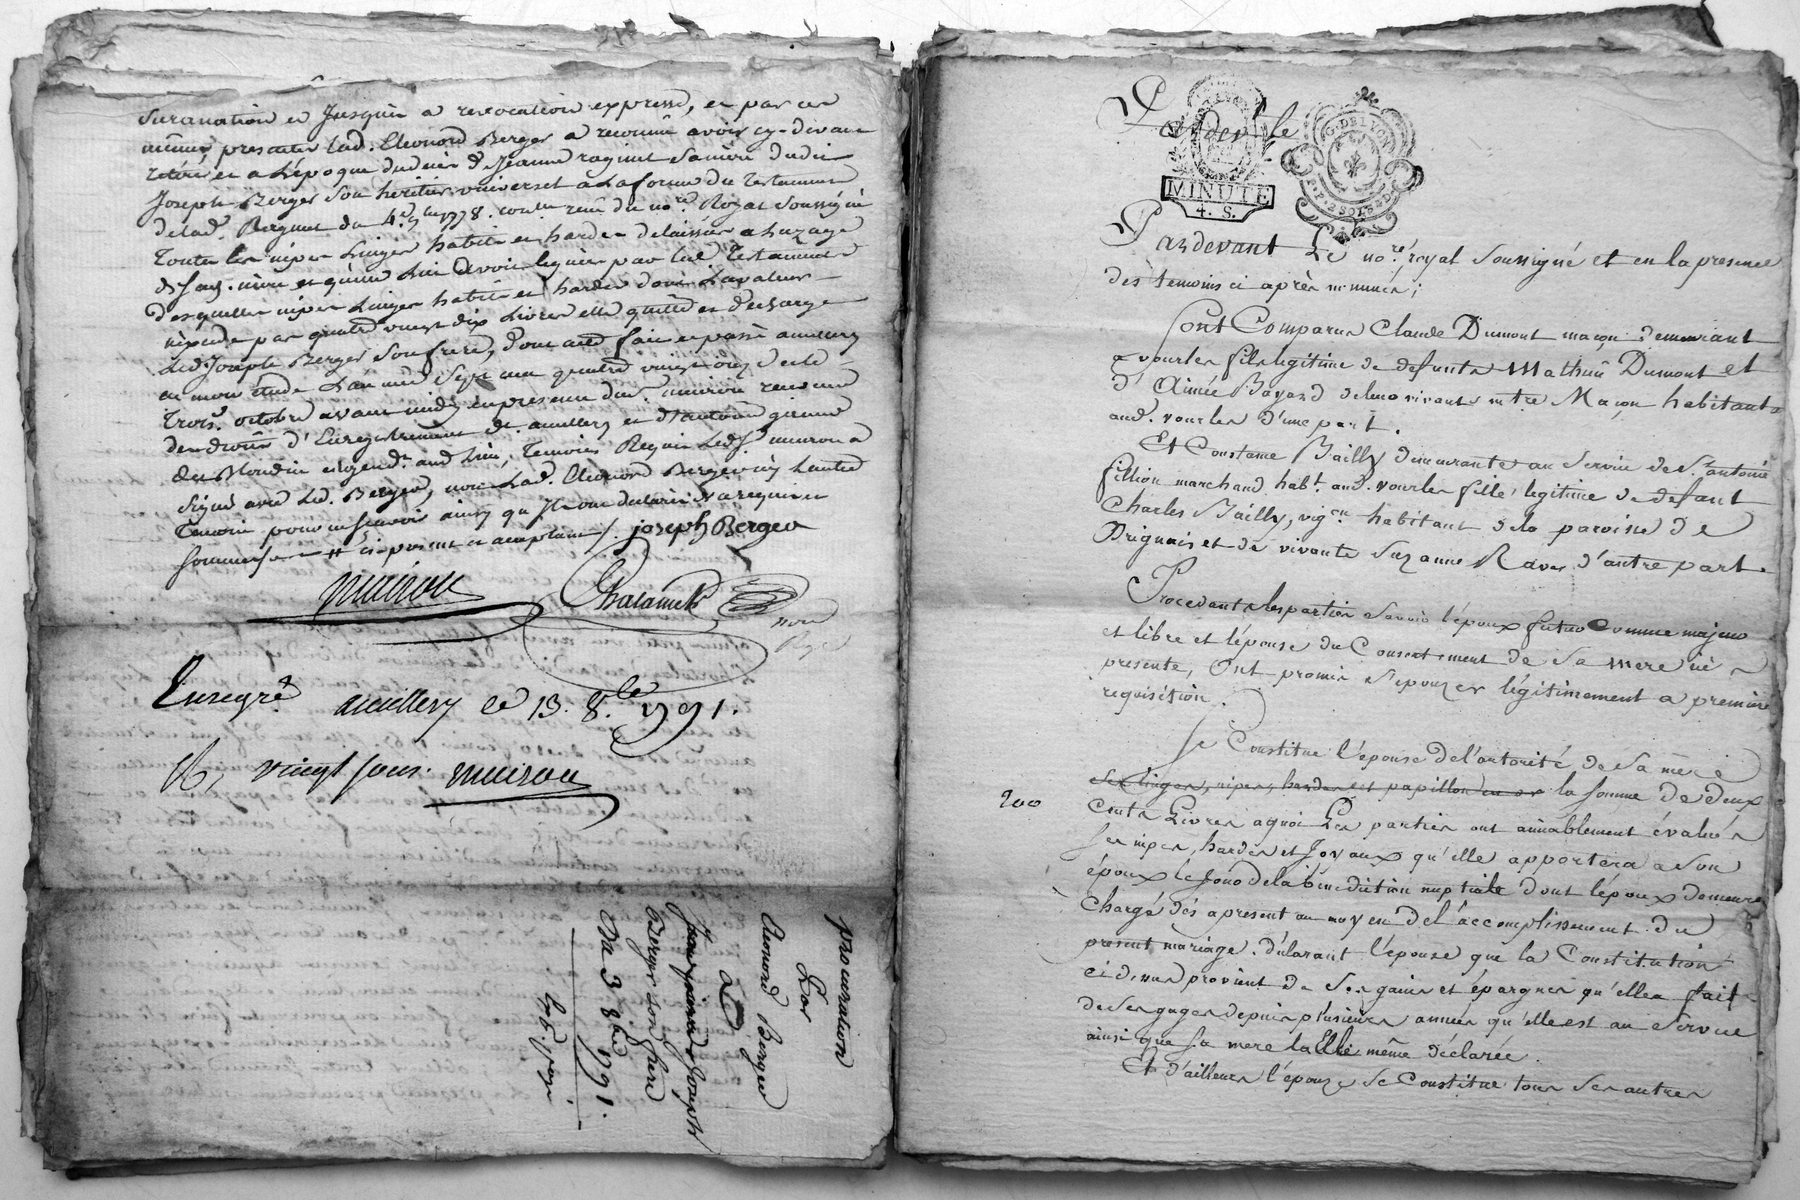 Surannation et Jusqu'à a revocation expresse, et par ces
mêmes presentes lad. Eleonord Berger a reconnu avoir cy-devant
retiré et a L'époque du decès de Jeanne raginet Sa mère dudit
Joseph Berger Son heritier universel a la forme du Testament
delad. Raginet du 4e. 7bre 1778. reçu du nore. Royal Soussigné
Toutes les nipes Linges habits et hardes delaissées a Luzage
de Sad. mère et qu'elle Lui avoit leguées par led. Testament
desquelles nipes Linges habits et hardes dont La valeur
par quatre vingt dix Livres elle quitte et decharge
Led. Joseph Berger Son frere, dont acte fait et passé amillery
en mon étude L'an mil Sept cent quatre vingt onze et le
Trois. octobre avant midy en presence du Sr. muiron receveur
des droits d'Enregistrement de amillery et d'antoine
aud. Lieu, Temoins Requis Led. Sr. muiron a
Signé avec Led. Berger, non Lad. Eleonord Berger ni Lautre
Temoin pour ne Scavoir ainsy qu'ils ont declaré de ce requis et
Sommés ici present et acceptant /. joseph Berger
muiron Chalamel
nore
Enregré. amillery le 13. 8.bre 1791.
R, vingt sous. muiron
procuration
Par
Eleonord Berger
a
Joseph
Berger son frere
Du 3 8bre 1791.
Pardevt. le
G. DE LYON
MINUTE
4. S.
G. DE LYON
P. P. 2 SOLS 4 D.
Pardevant Le nore. royal Soussigné et en la presence
des temoins ci après nommés;
Sont Comparus Claude Dumont maçon demeurant
a vourles fils legitime de defunts Mathieu Dumont et
d'Aimée Bayard de leur vivants mtre. Maçon habitants
aud. vourles d'une part.
Et Constance Bailly demeurante au Service de Sr. antoine
fillion marchand habt. aud. vourles fille legitime de defunt
Charles Bailly, vigon. habitant de la paroisse de
Brignais et de vivante Suzanne Raver d'autre part.
Procedants les parties Savoir l'époux futur Comme majeur
et libre et l'épouse du Consentement de Sa mere ici
presente, Ont promis s'epouzer légitimement a premiere
requisition.
Se Constitue l'épouse de l'autorité de Sa mere
Ses linges, nipes, hardes et papillon en or la Somme de deux
200
Cents Livres a quoi Les parties ont aimablement évalué
Ses nipes, hardes et Joyaux qu'elle apportera a Son
époux le Jour de la bénédiction nuptiale dont l'époux demeure
Chargé dés apresent au moyen de l'accomplissement du
present mariage. déclarant l'épouse que la Constitution
ci devant provient de Ses gains et épargnes qu'elle a fait
de Ses gages depuis plusieurs années qu'elle est au Service
ainsi que Sa mere la Elle même déclarée.
Et d'ailleurs l'épouze Se Constitue tous Ses autres